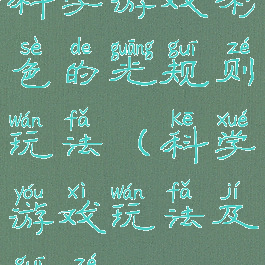 科学游戏彩
sè de guāng guī zé
色的光规则
wán fǎ kē xué
玩法（科学
yóu xì wán fǎ jí
游戏玩法及
guī zé